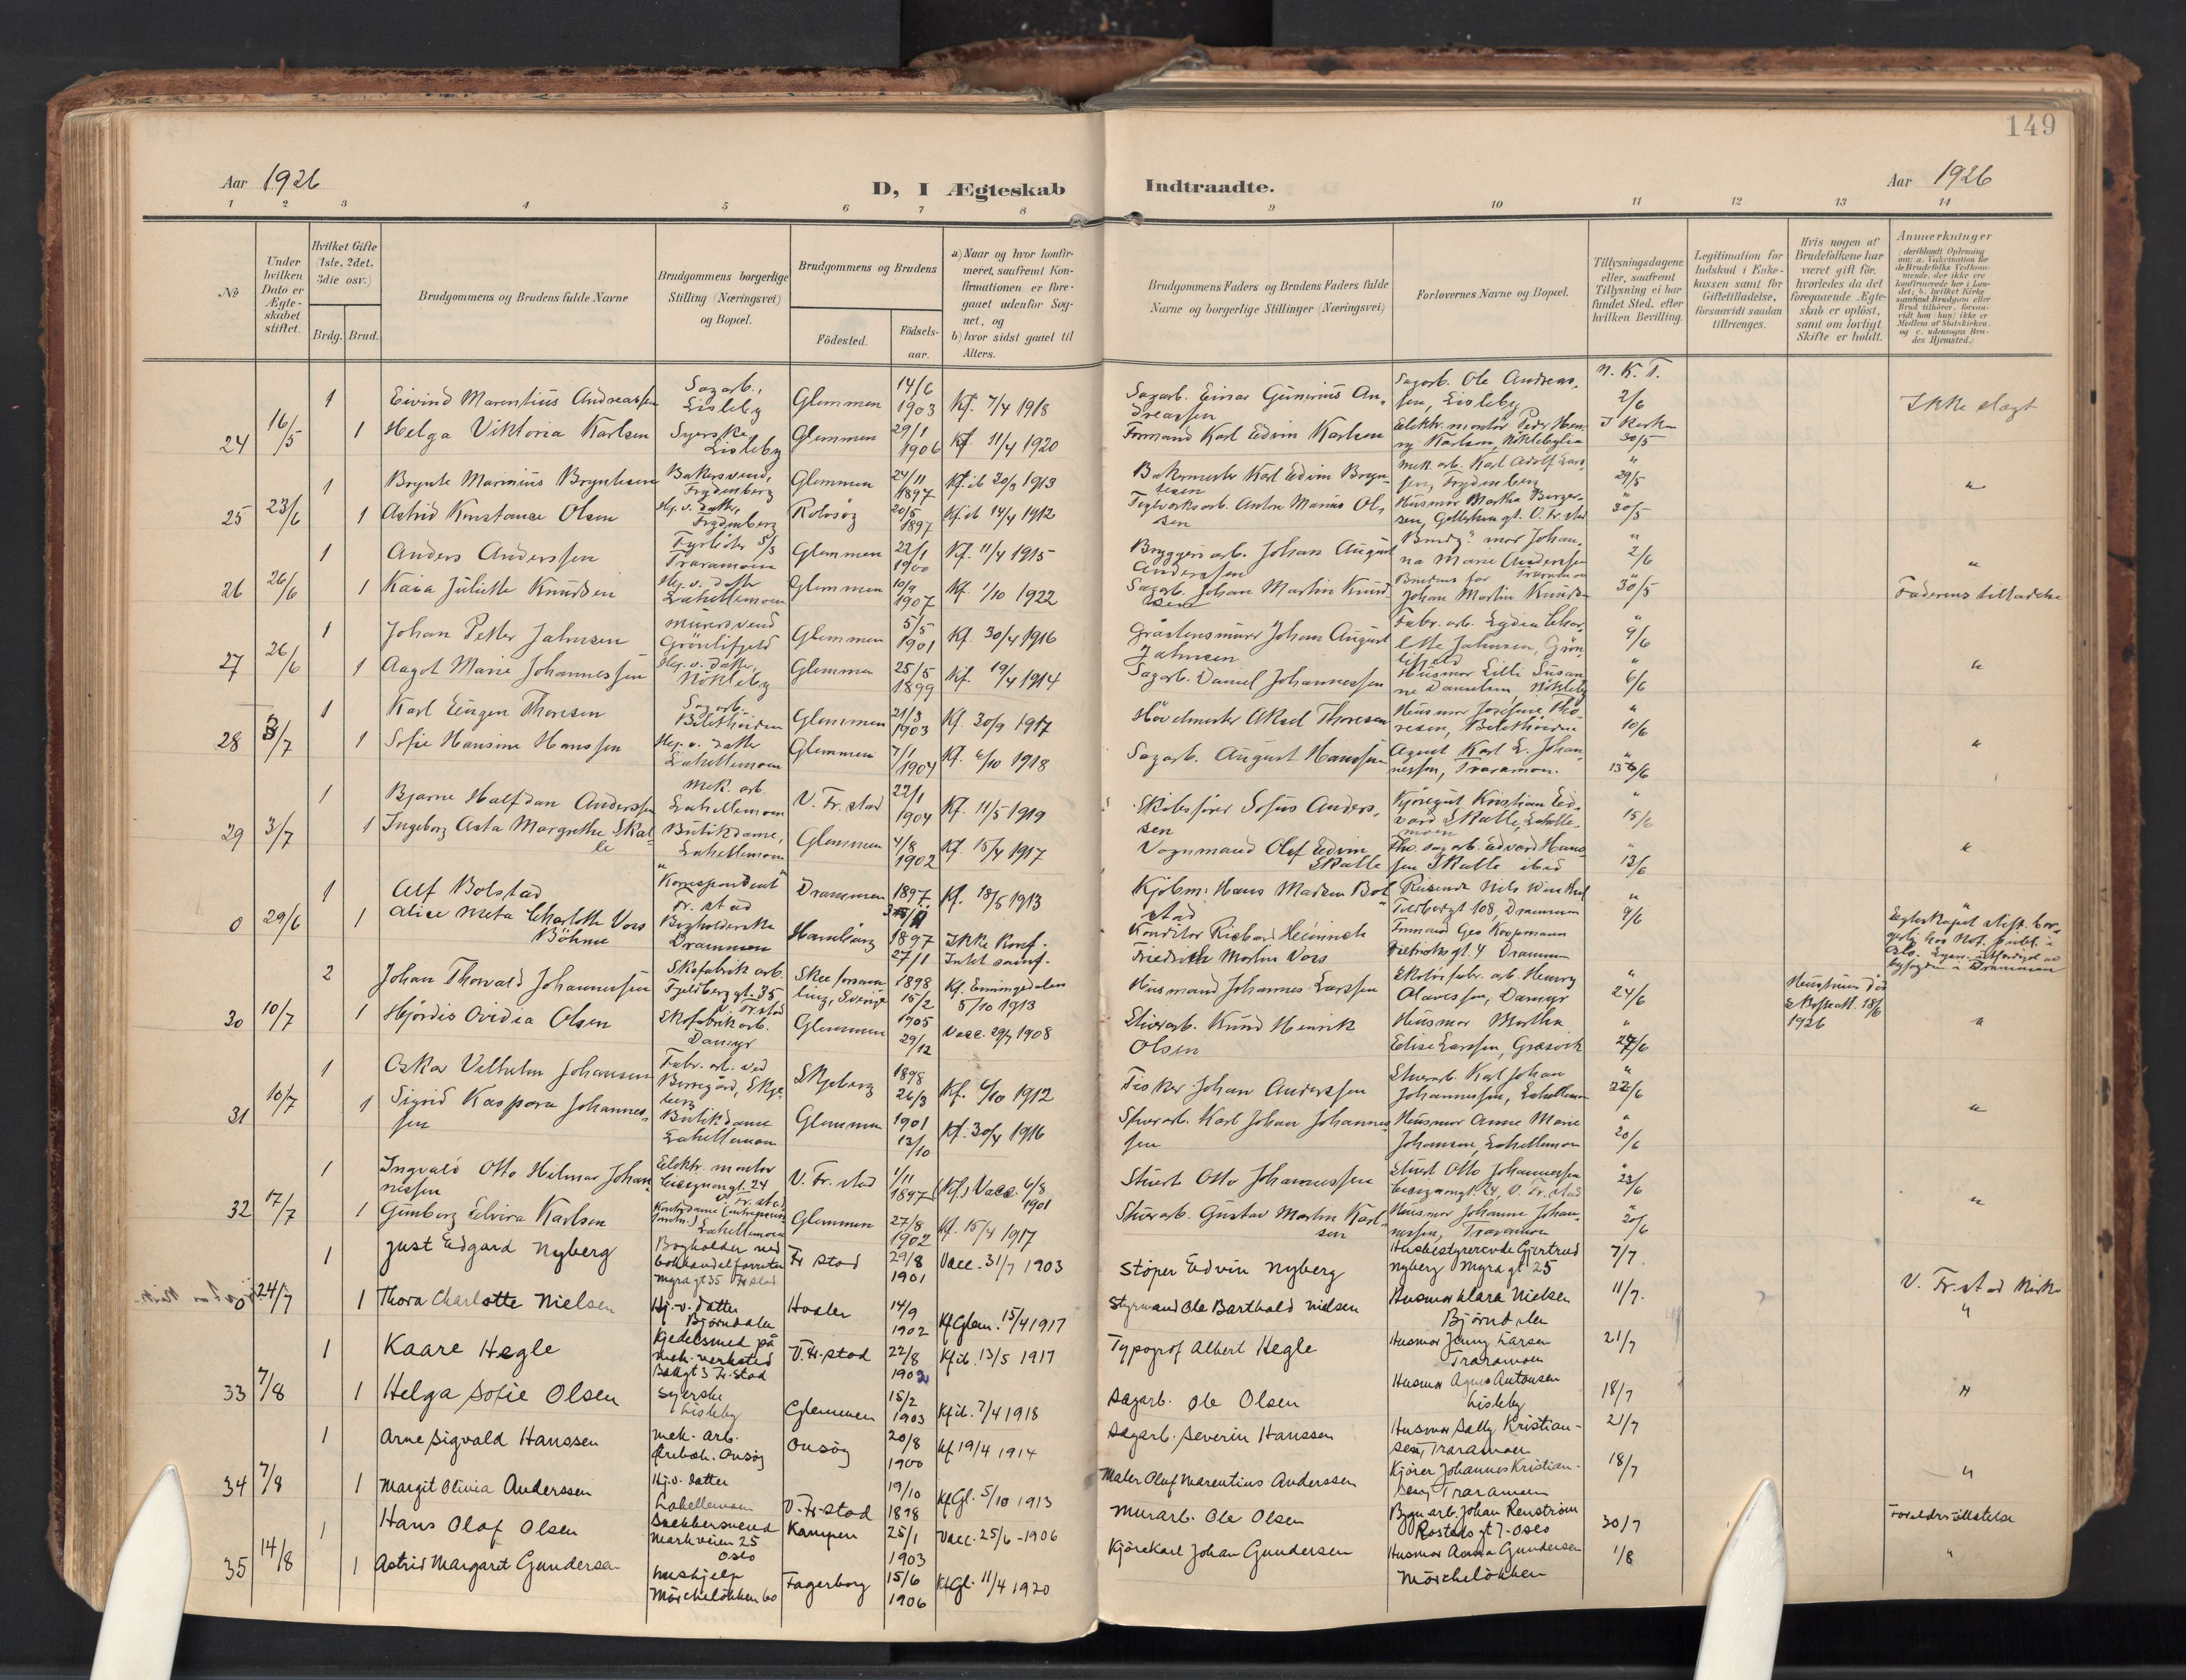 149
Aar 1926
D, I Ægteskab
Indtraadte.
Aar 1926
1 2 3 4 5 6 7 8 9 10 11 12 13 14
No
Under hvilken Dato er Ægteskabet stiftet.
Hvilket Gifte (1ste, 2det, 3die osv.)
Brdg. Brud.
Brudgommens og Brudens fulde Navne
Brudgommens borgerlige Stilling (Næringsvei) og Bopæl.
Brudgommens og Brudens
Födested.
Födsels-aar.
a) Naar og hvor konfirmeret, saafremt Konfirmationen er foregaaet udenfor Sognet, og
b) hvor sidst gaaet til Alters.
Brudgommens Faders og Brudens Faders fulde Navne og borgerlige Stillinger (Næringsvei)
Forlovernes Navne og Bopæl.
Tillysningsdagene eller, saafremt Tillysning ei har fundet Sted, efter hvilken Bevilling.
Legitimation for Indskud i Enkekassen samt for Giftetilladelse, forsaavidt saadan tiltrænges.
Hvis nogen af Brudefolkene har været gift før, hvorledes da det foregaaende Ægteskab er opløst, samt om lovligt Skifte er holdt.
Anmerkninger
24 16/5
1 Eivind Marentius Andreassen Sagarb., Lisleby Glemmen 14/6 1903 Kf. 7/4 1918 Sagarb. Einar Gunerius Andreassen Sagarb. Ole Andreassen, Lisleby N. K. T. 2/6 Ikke slegt
1 Helga Viktoria Karlsen Syerske, Lisleby Glemmen 29/1 1906 Kf. 11/4 1920 Formand Karl Edvin Karlsen Elektr. montør Peder Henry Karlsen, I Kirken 30/5
25 23/6
1 Brynte Marinius Bryntesen Bakersvend, Frydenberg Glemmen 24/11 1897 Kf. ib 20/3 1913 Bakermester Karl Edvin Bryntesen Mek. arb. Karl Adolf Larssen, Frydenberg " 29/5 "
1 Astrid Konstance Olsen Hj. v. datter, Frydenberg Rolvsøy 20/5 1897 Kf. ib 14/4 1912 Teglverksarb. Anton Marius Olsen Husmor Martha " 30/5
26 26/6
1 Anders Anderssen Fyrbøter Traramoen Glemmen 22/1 1900 Kf. 11/4 1915 Bryggeriarb. Johan August Anderssen Brudg? mor Johanna Marie Anderssen " 2/6 "
1 Kaia Juliette Knudsen Hj. v. datter Lahellemoen Glemmen 10/9 1907 Kf. 1/10 1922 Sagarb. Johan Martin Knudsen Brudens far Johan Martin Knudsen 30/5 Faderens tilladelse
27 26/6
1 Johan Petter Jahnsen Murersvend Grønlifjeld Glemmen 5/5 1901 Kf. 30/4 1916 Gråstensmurer Johan August Jahnsen Fabr. arb. Lydia Charlotte Jahnsen, Grønlifjeld " 9/6
1 Aagot Marie Johannessen Hj. v. datter, Nökleby Glemmen 25/5 1899 Kf. 19/4 1914 Sagarb. Daniel Johannessen Husmor Lilli Susanne Danielsen, Nökleby " 6/6 "
28 3/7
1 Karl Eugen Thoresen Sagarb. Glemmen 21/3 1903 Kf. 30/9 1917 Høvelmester Aksel Thoresen Husmor Josefine Thoresen, " 10/6
1 Sofie Hansine Hanssen Hj. v. datter Lahellemoen Glemmen 7/1 1904 Kf. 6/10 1918 Sagarb. August Hanssen Agent Karl E. Johannessen, Traramoen " 13/6 "
29 3/7
1 Bjarne Halfdan Anderssen Mek. arb. Lahellemoen V. Fr. stad 22/1 1904 Kf. 11/5 1919 Skibsfører Sofus Anderssen Kjøregut Kristian Edvard Skalle, Lahellemoen " 15/6
1 Ingeborg Asta Margrethe Skalle Butikdame, Lahellemoen Glemmen 4/8 1902 Kf. 15/4 1917 Vognmand Olaf Edvin Skalle Fhv. sagarb. Edvard Hanssen Skalle ibid " 13/6 "
0 29/6
1 Alf Bolstad Korrespondent Fr. stad Drammen 1897 Kf. 18/5 1913 Kjøbm. Hans Madsen Bolstad Reisende Nils 108, Drammen " 9/6
1 Alice Meta Charlotte Voss Böhme Bogholderske Drammen Hamburg 1897 27/1 Ikke Konf. Konditor Richard Heinrich Friedrich Martin Voss Formand Geo Koopmann gt. 4 Drammen
30 10/7
2 Johan Thorvald Johannessen Skofabrik arb. Fjeldberggt. 35 V. Fr. stad Skee forsamling, Sverige 1898 15/2 Kf. Enningedalen 5/10 1913 Husmand Johannes Larssen Skofabr. arb. Henry Olavessen, Damyr " 24/6 Hustruen død 18/6 1926
1 Hjördis Ovidia Olsen Skofabrikarb. Damyr Glemmen 1905 29/12 Vacc. 29/7 1908 Stuerarb. Knud Henrik Olsen Husmor Martha Elise Larssen, Græsvik " 24/6 "
31 10/7
1 Oskar Vilhelm Johansen Fabr. arb. ved Borregård, Skjeberg Skjeberg 1898 26/3 Kf. 6/10 1912 Fisker Johan Anderssen Stuerarb. Karl Johan Johannessen, Lahellemoen " 22/6
1 Sigrid Kaspara Johannessen Butikdame Lahellemoen Glemmen 1901 13/10 Kf. 30/4 1916 Stuerarb. Karl Johan Johannessen Husmor Anne Marie Johansen, Lahellemoen " 20/6 "
32 17/7
1 Ingvald Otto Hilmar Johannessen Elektr. montør 24 V. Fr. stad V. Fr. stad 1/11 1897 (Kf.) Vacc. 6/8 1901 Stuert Otto Johannessen Stuert Otto Johannessen 24, V. Fr. stad " 23/6
1 Gunborg Elvira Karlsen Kontordame Lahellemoen Glemmen 27/8 1902 Kf. 15/4 1917 Stuerarb. Gustav Martin Karlsen Husmor Johanne Johannessen, Traramoen " 20/6 "
0 24/7
1 Just Edgard Nyberg Bogholder ved bokhandelforretn Myragt 35 Fr stad Fr stad 29/8 1901 Vacc. 31/7 1903 Støper Edvin Nyberg Husbestyrerende Gjertrud Nyberg Myragt 25 7/7 V. Fr. stad kirke
1 Thora Charlotte Nielsen Hj. v. datter Bjørndalen Hvaler 14/9 1902 Kf Glem. 15/4 1917 Styrmand Ole Barthold Nielsen Husmor Klara Nielsen Bjørndalen 11/7. "
33 7/8
1 Kaare Hegle Kjedelsmed på mek. verksted Bakgt 3 Fr. stad V. Fr. stad 22/8 1902 Kf ib. 13/5 1917 Typograf Albert Hegle Husmor Jenny Larsen Traramoen 21/7
1 Helga Sofie Olsen Syerske Lisleby Glemmen 15/2 1903 Kf ib. 7/4 1918 Sagarb. Ole Olsen Husmor Agnes Antonsen Lisleby 18/7 "
34 7/8
1 Arne Sigvald Hanssen Mek. arb. Onsøy Onsøy 20/8 1900 Kf 19/4 1914 Sagarb. Severin Hanssen Husmor Sally Kristiansen, Traramoen 21/7
1 Margit Olivia Anderssen Hj. v. datter Lahellemoen V. Fr. stad 19/10 1898 Kf Gl. 5/10 1913 Maler Oluf Marentius Anderssen Kjører Johannes Kristiansen, Traramoen 18/7 "
35 14/8
1 Hans Olaf Olsen Snekkersvend Markveien 25 Oslo Kampen 25/1 1903 Vacc. 25/6 - 1906 Murarb. Ole Olsen Bygn arb. Johan Renstrøm Rostedsgt 7 - Oslo 30/7
1 Astrid Margaret Gundersen Hushjelp 60 Fagerborg 15/6 1906 Kf Gl. 11/4 1920 Kjørekarl Johan Gundersen Husmor Anna Gundersen 1/8 "